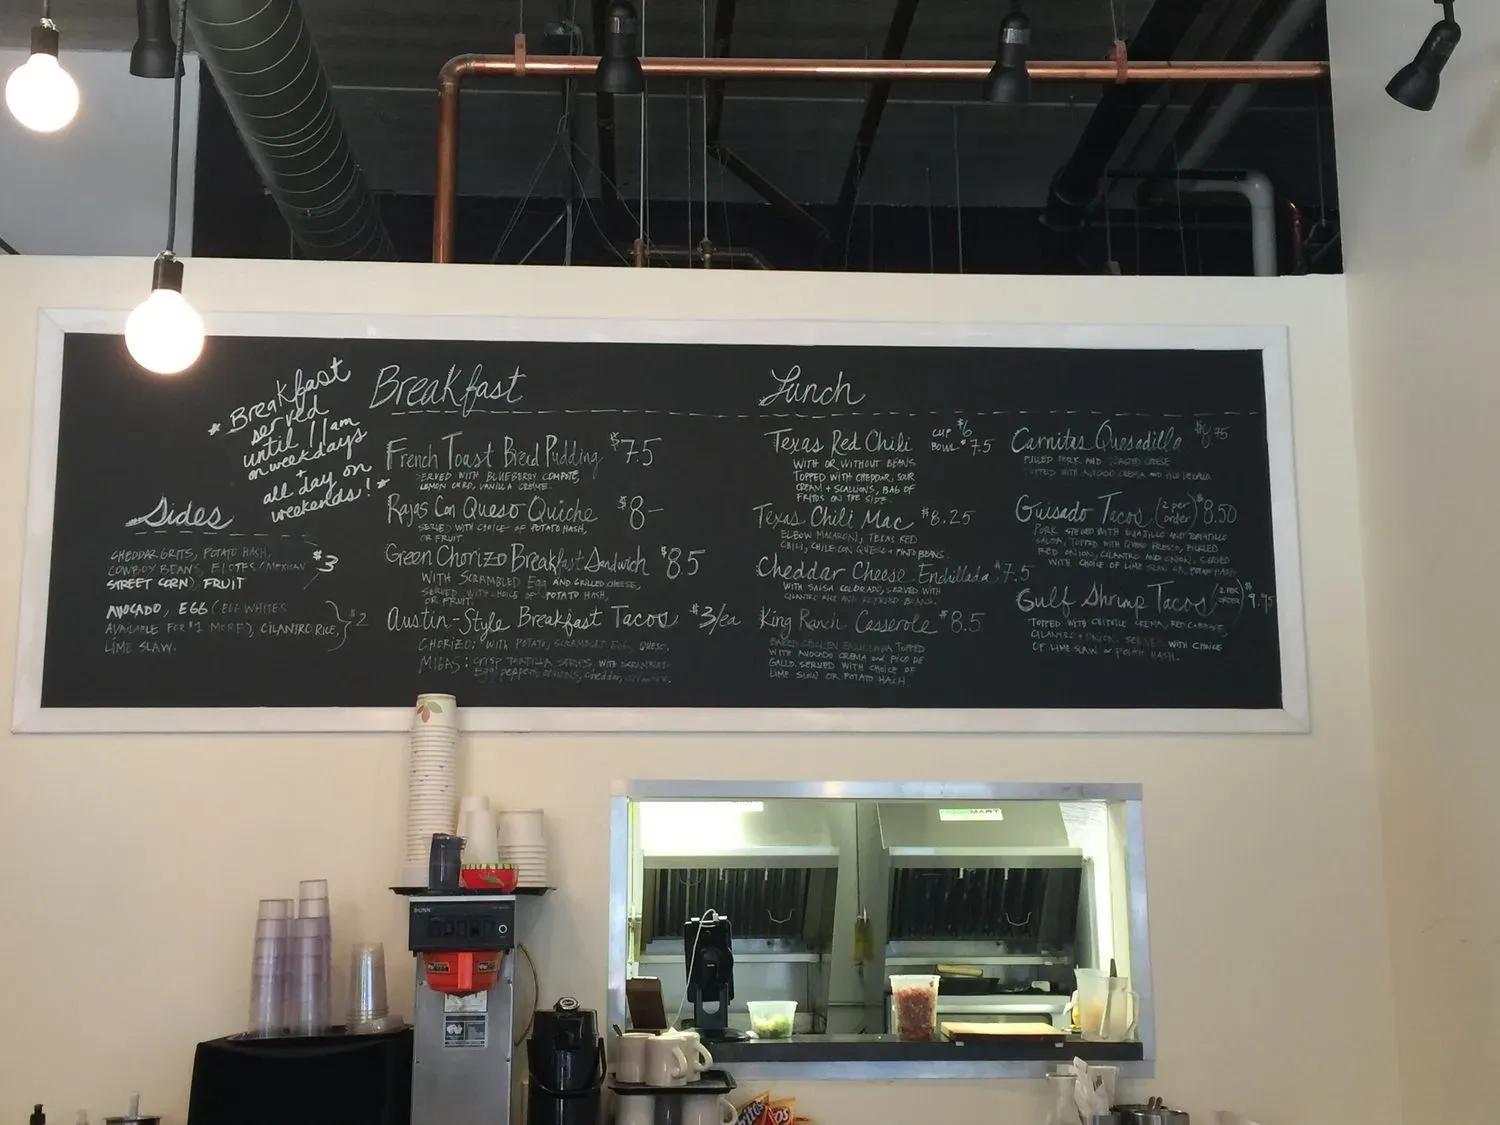 * Breakfast
served
until 11am
on weekdays
+
all day on
weekends! *
Sides
CHEDDAR GRITS, POTATO HASH,
COWBOY BEANS, ELOTES (MEXICAN
STREET CORN) FRUIT
$3
AVOCADO, EGG (EGG WHITES
AVAILABLE FOR $1 MORE), CILANTRO RICE,
LIME SLAW.
$2
Breakfast
French Toast Bread Pudding $7.5
SERVED WITH BLUEBERRY COMPOTE,
LEMON CURD, VANILLA CREME.
Rajas Con Queso Quiche $8-
SERVED WITH CHOICE OF POTATO HASH,
OR FRUIT
Green Chorizo Breakfast Sandwich $8.5
WITH SCRAMBLED Egg AND GRILLED CHEESE,
SERVED WITH CHOICE OF POTATO HASH,
OR FRUIT.
Austin-Style Breakfast Tacos $3/ea
CHORIZO: WITH POTATO, SCRAMBLED EGG, QUESO,
MIGAS: CRISP TORTILLA STRIPS WITH SCRAMBLED
Egg, peppers, onions, cheddar,
Lunch
Texas Red Chili CUP $6
BOWL $7.5
WITH OR WITHOUT BEANS
TOPPED WITH CHEDDAR, SOUR
CREAM + SCALLIONS, BAG OF
FRITOS ON THE SIDE.
Texas Chili Mac $8.25
ELBOW MACARONI, TEXAS RED
CHILI, CHILE CON QUESO + PINTO BEANS.
Cheddar Cheese Enchilada $7.5
WITH SALSA COLORADO, SERVED WITH
CILANTRO RICE AND REFRIED BEANS.
King Ranch Casserole $8.5
BAKED CHICKEN ENCHILADA TOPPED
WITH AVOCADO CREMA AND PICO DE
GALLO. SERVED WITH CHOICE OF
LIME SLAW OR POTATO HASH.
Carnitas Quesadilla
PULLED PORK AND TOASTED CHEESE
TOPPED WITH AVOCADO CREMA AND
Guisado Tacos (2 per order) $8.50
PORK STEWED WITH GUAJILLO AND TOMATILLO
SALSA, TOPPED WITH QUESO FRESCO, PICKLED
RED ONION, CILANTRO AND ONION. SERVED
WITH CHOICE OF LIME SLAW OR POTATO HASH
Gulf Shrimp Tacos (2 PER ORDER) $9.75
TOPPED WITH CHIPOTLE CREMA, RED CABBAGE,
CILANTRO + ONION. SERVED WITH CHOICE
OF LIME SLAW OR POTATO HASH.
BUNN